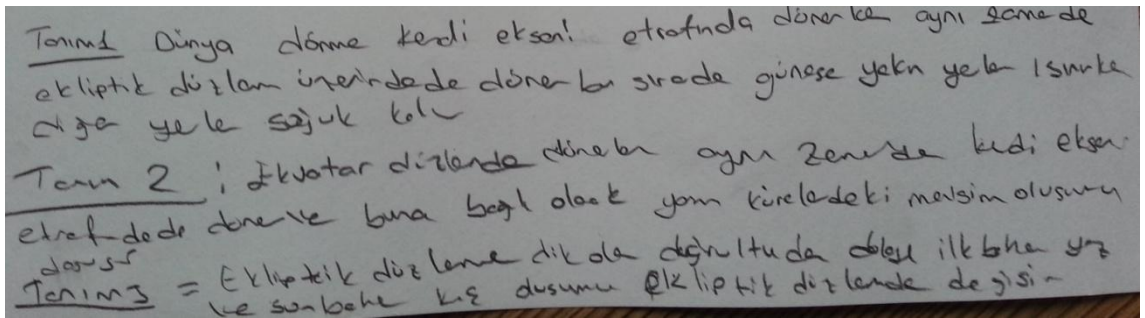 Tanım1 Dünya dönme kendi ekseni etrafında dönerken aynı zamanda
ekliptik düzlem üzerindede döner bu sırada güneşe yakın yerler ısınırken
diğer yerler soğuk kalır
Tanım 2 : Ekvator düzlemde dönerken aynı zamanda kendi eksen
etrafındada döner ve buna bağlı olarak yarım kürelerdeki mevsim oluşumu
Tanım3 = Ekliptik düzleme dik olan doğrultuda ilkbahar yaz
ve sonbahar kış durumu ekliptik düzlemde değişir